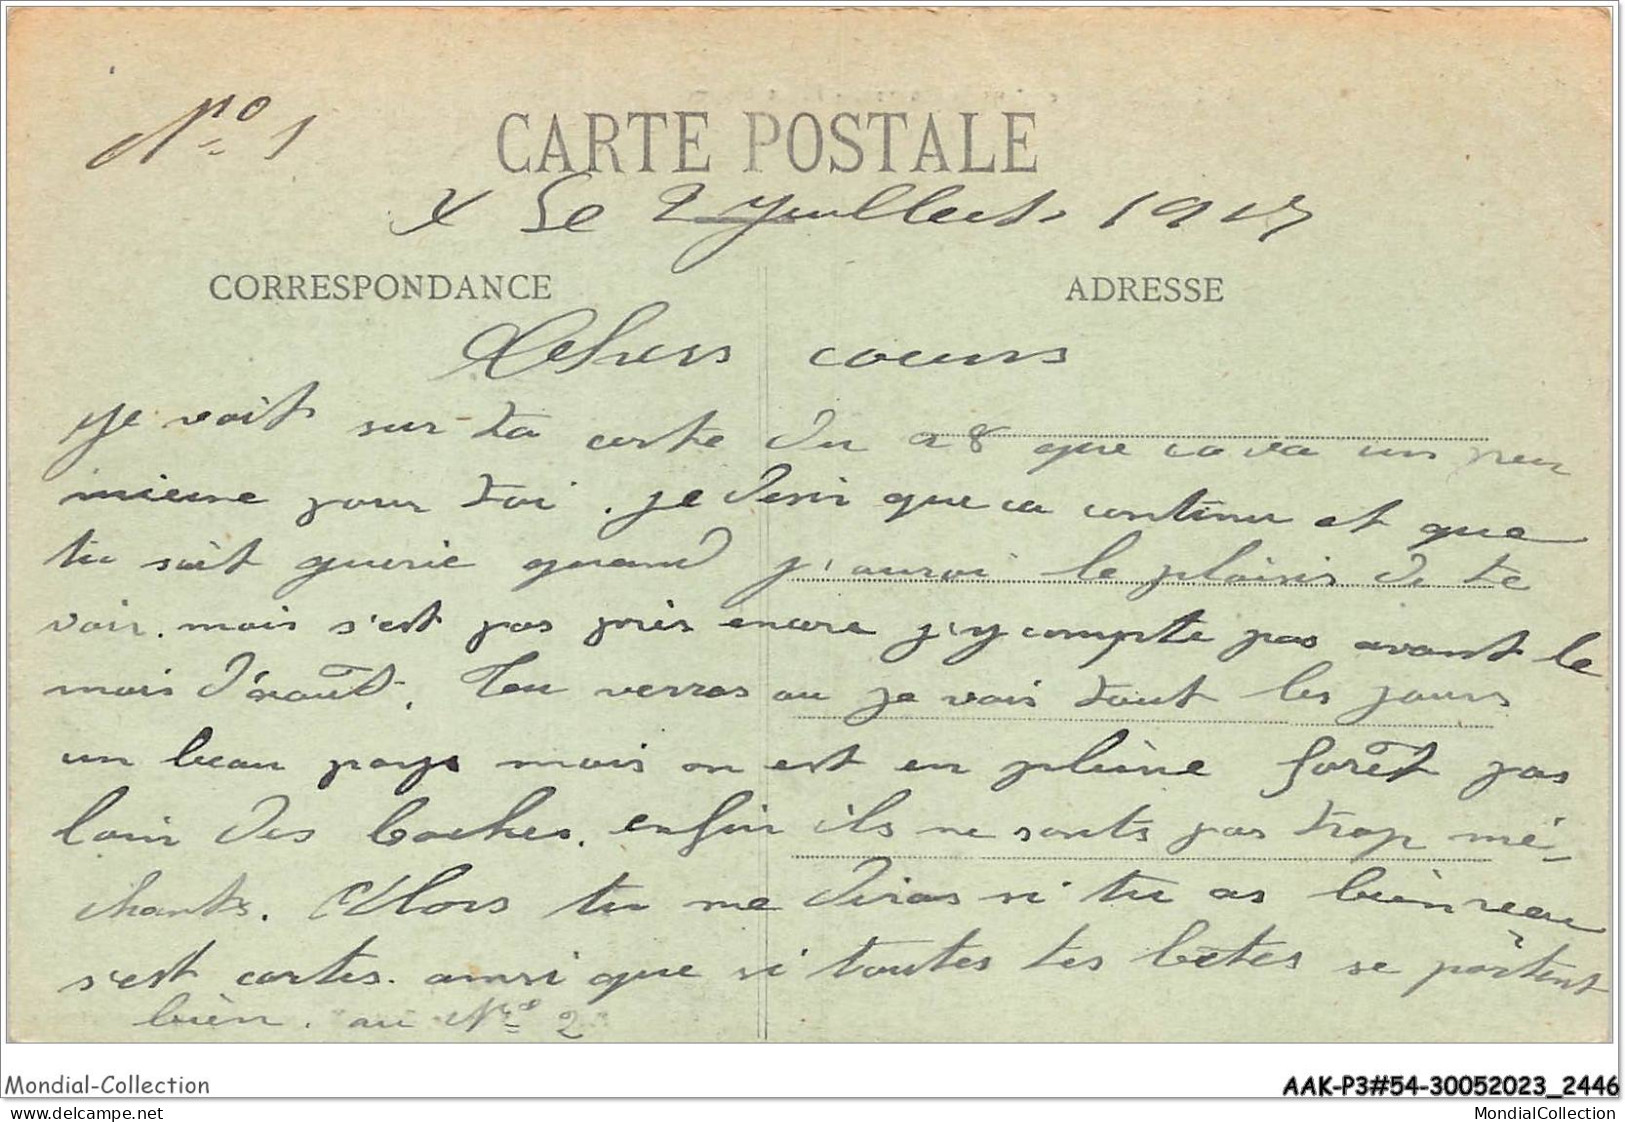 N° 1
CARTE POSTALE
X Le 2 Juillet 1917
CORRESPONDANCE
ADRESSE
Chers
Je voit sur ta carte du 28 que ca va un peu
mieux pour toi. je desir que ca continu et que
tu soit guerie quand j'aurai le plaisir de te
voir. mais s'est pas près encore j'y compte pas avant le
mois d'août. Tu verras ou je vais tout les jours
un beau pays mais on est en pleine forêt pas
loin des boches. enfin ils ne sonts pas trop mé-
chants. Alors tu me diras si tu as bien reçu
s'est cartes. ainsi que si toutes tes bêtes se portent
bien. au N° 2
Mondial-Collection
AAK-P3#54-30052023_2446
www.delcampe.net
MondialCollection